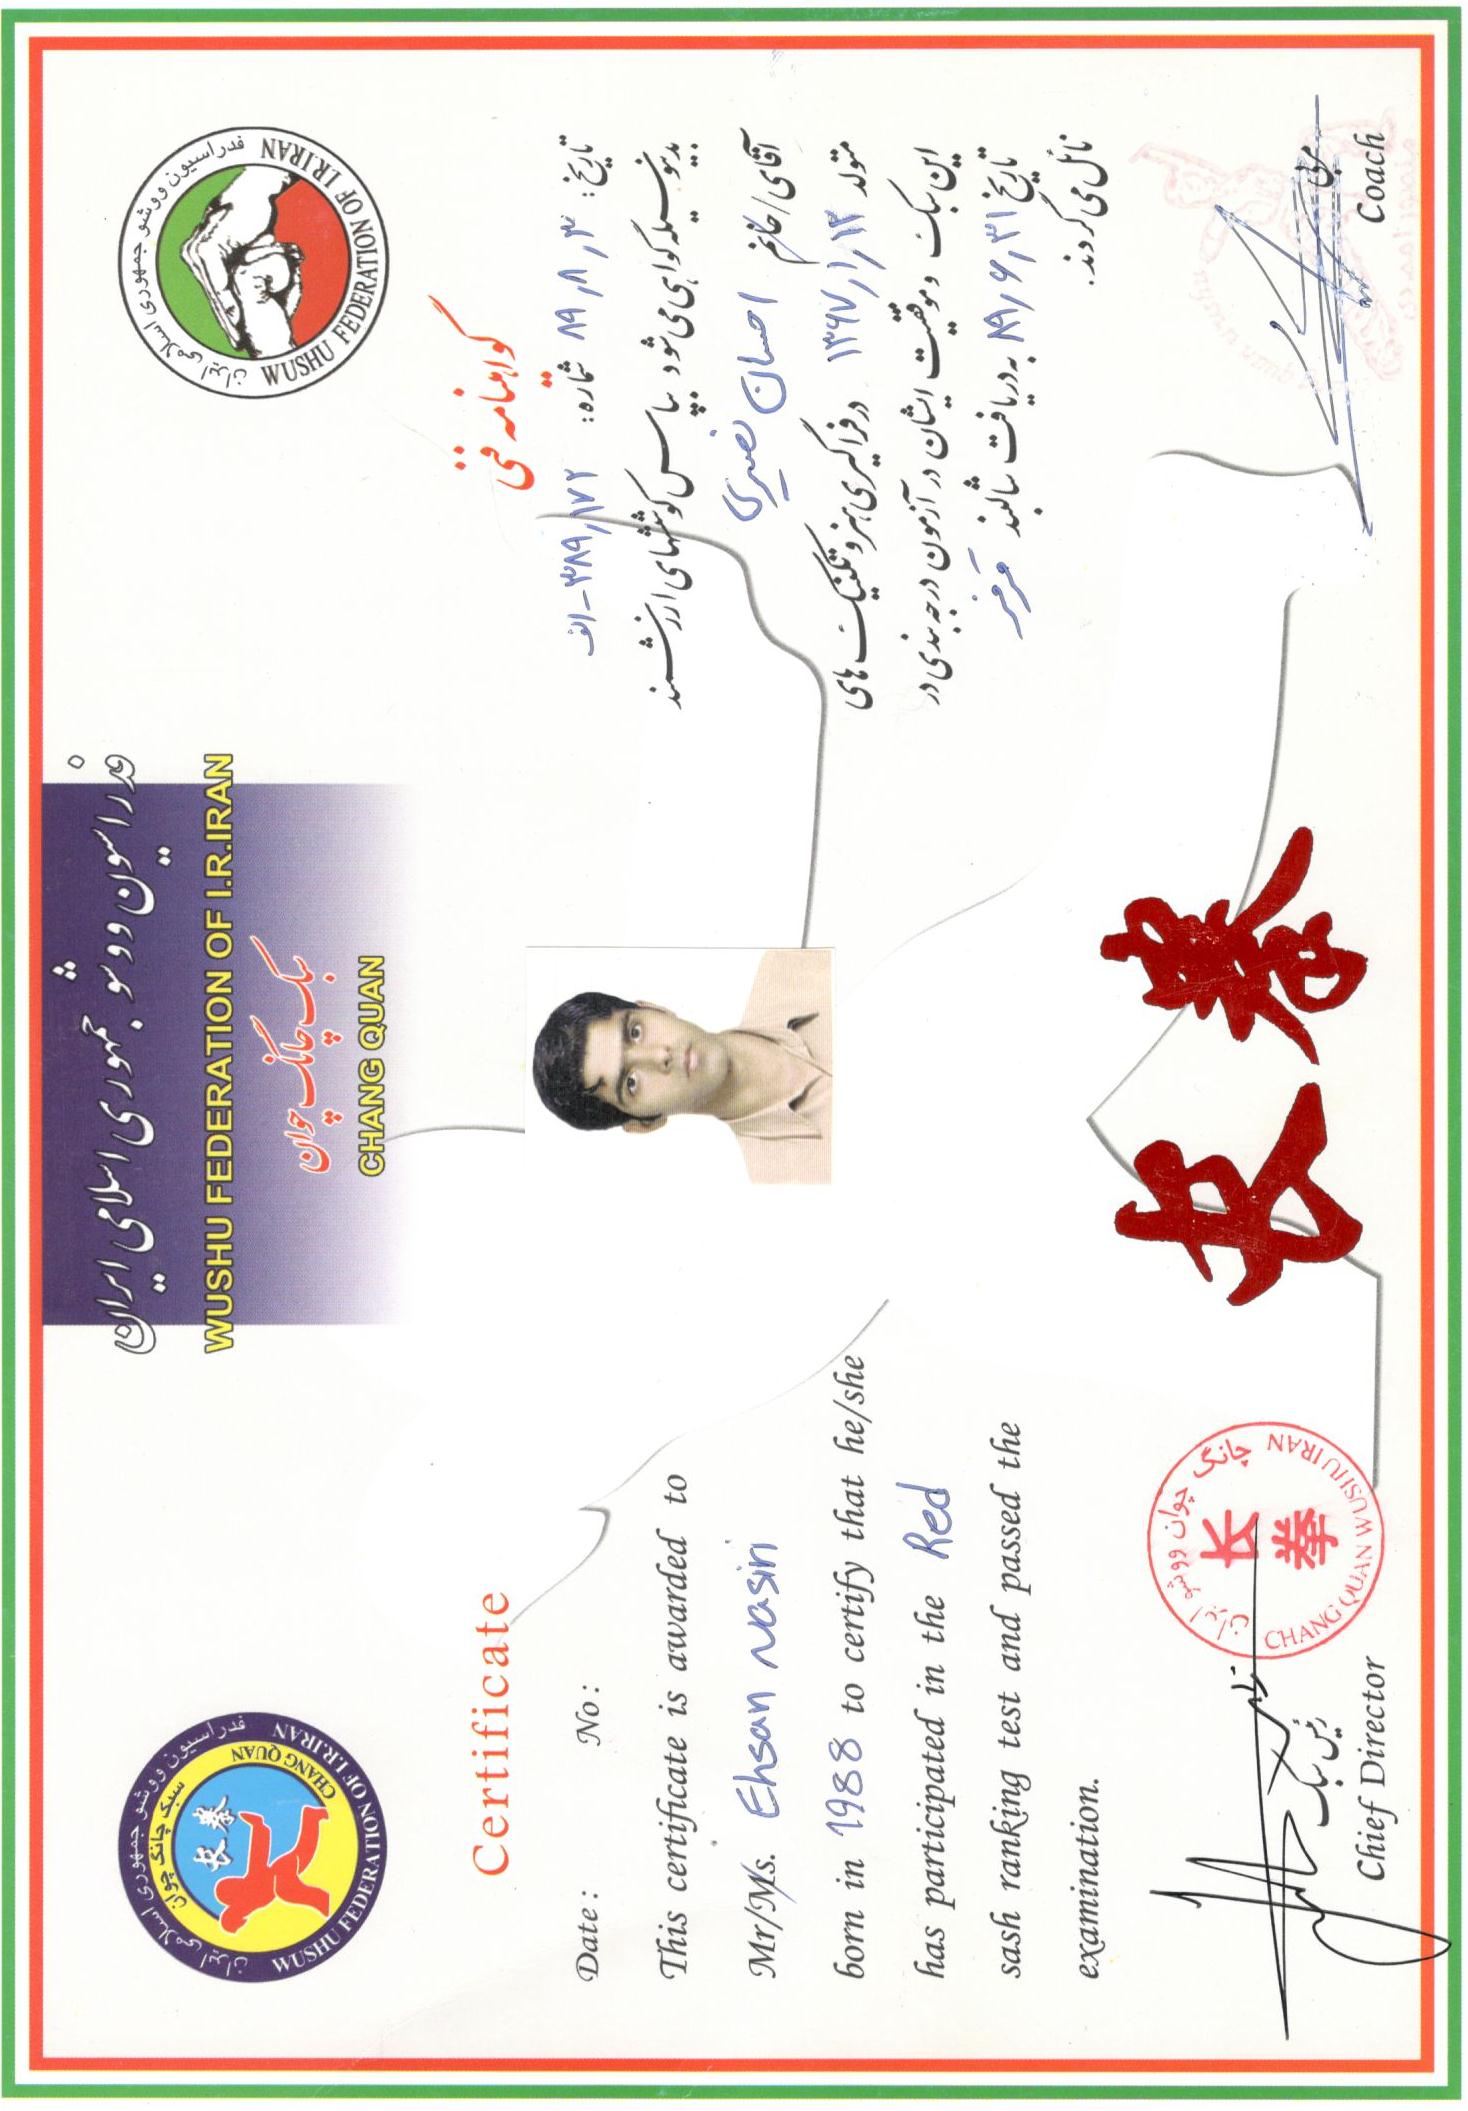 فدراسیون ووشو جمهوری اسلامی ایران
WUSHU FEDERATION OF I.R.IRAN
سبک چانگ چوان
CHANG QUAN
فدراسیون ووشو جمهوری اسلامی ایران
سبک چانگ چوان
CHANG QUAN
長拳
WUSHU FEDERATION OF I.R.IRAN
فدراسیون ووشو جمهوری اسلامی ایران
WUSHU FEDERATION OF I.R.IRAN
Certificate
Date: No:
This certificate is awarded to
Mr/Ms. Ehsan Nasiri
born in 1988 to certify that he/she
has participated in the Red
sash ranking test and passed the
examination.
گواهینامه فنی
تاریخ: ۸۹٫۸٫۳ شماره: ۳۸۹٫۱۷۲-الف
بدینوسیله گواهی می شود بپاس کوششهای ارزشمند
آقای/خانم احسان نصیری
متولد ۱۳۶۷٫۱٫۱۳ در فراگیری هنر و تکنیک های
این سبک و موفقیت ایشان در آزمون درجه بندی در
تاریخ ۸۹٫۶٫۳۱ به دریافت شالبند قرمز
نائل می گردند.
長拳
چانگ چوان ووشو ایران
长拳
CHANG QUAN WUSHU IRAN
رئیس سبک
Chief Director
مربی
Coach